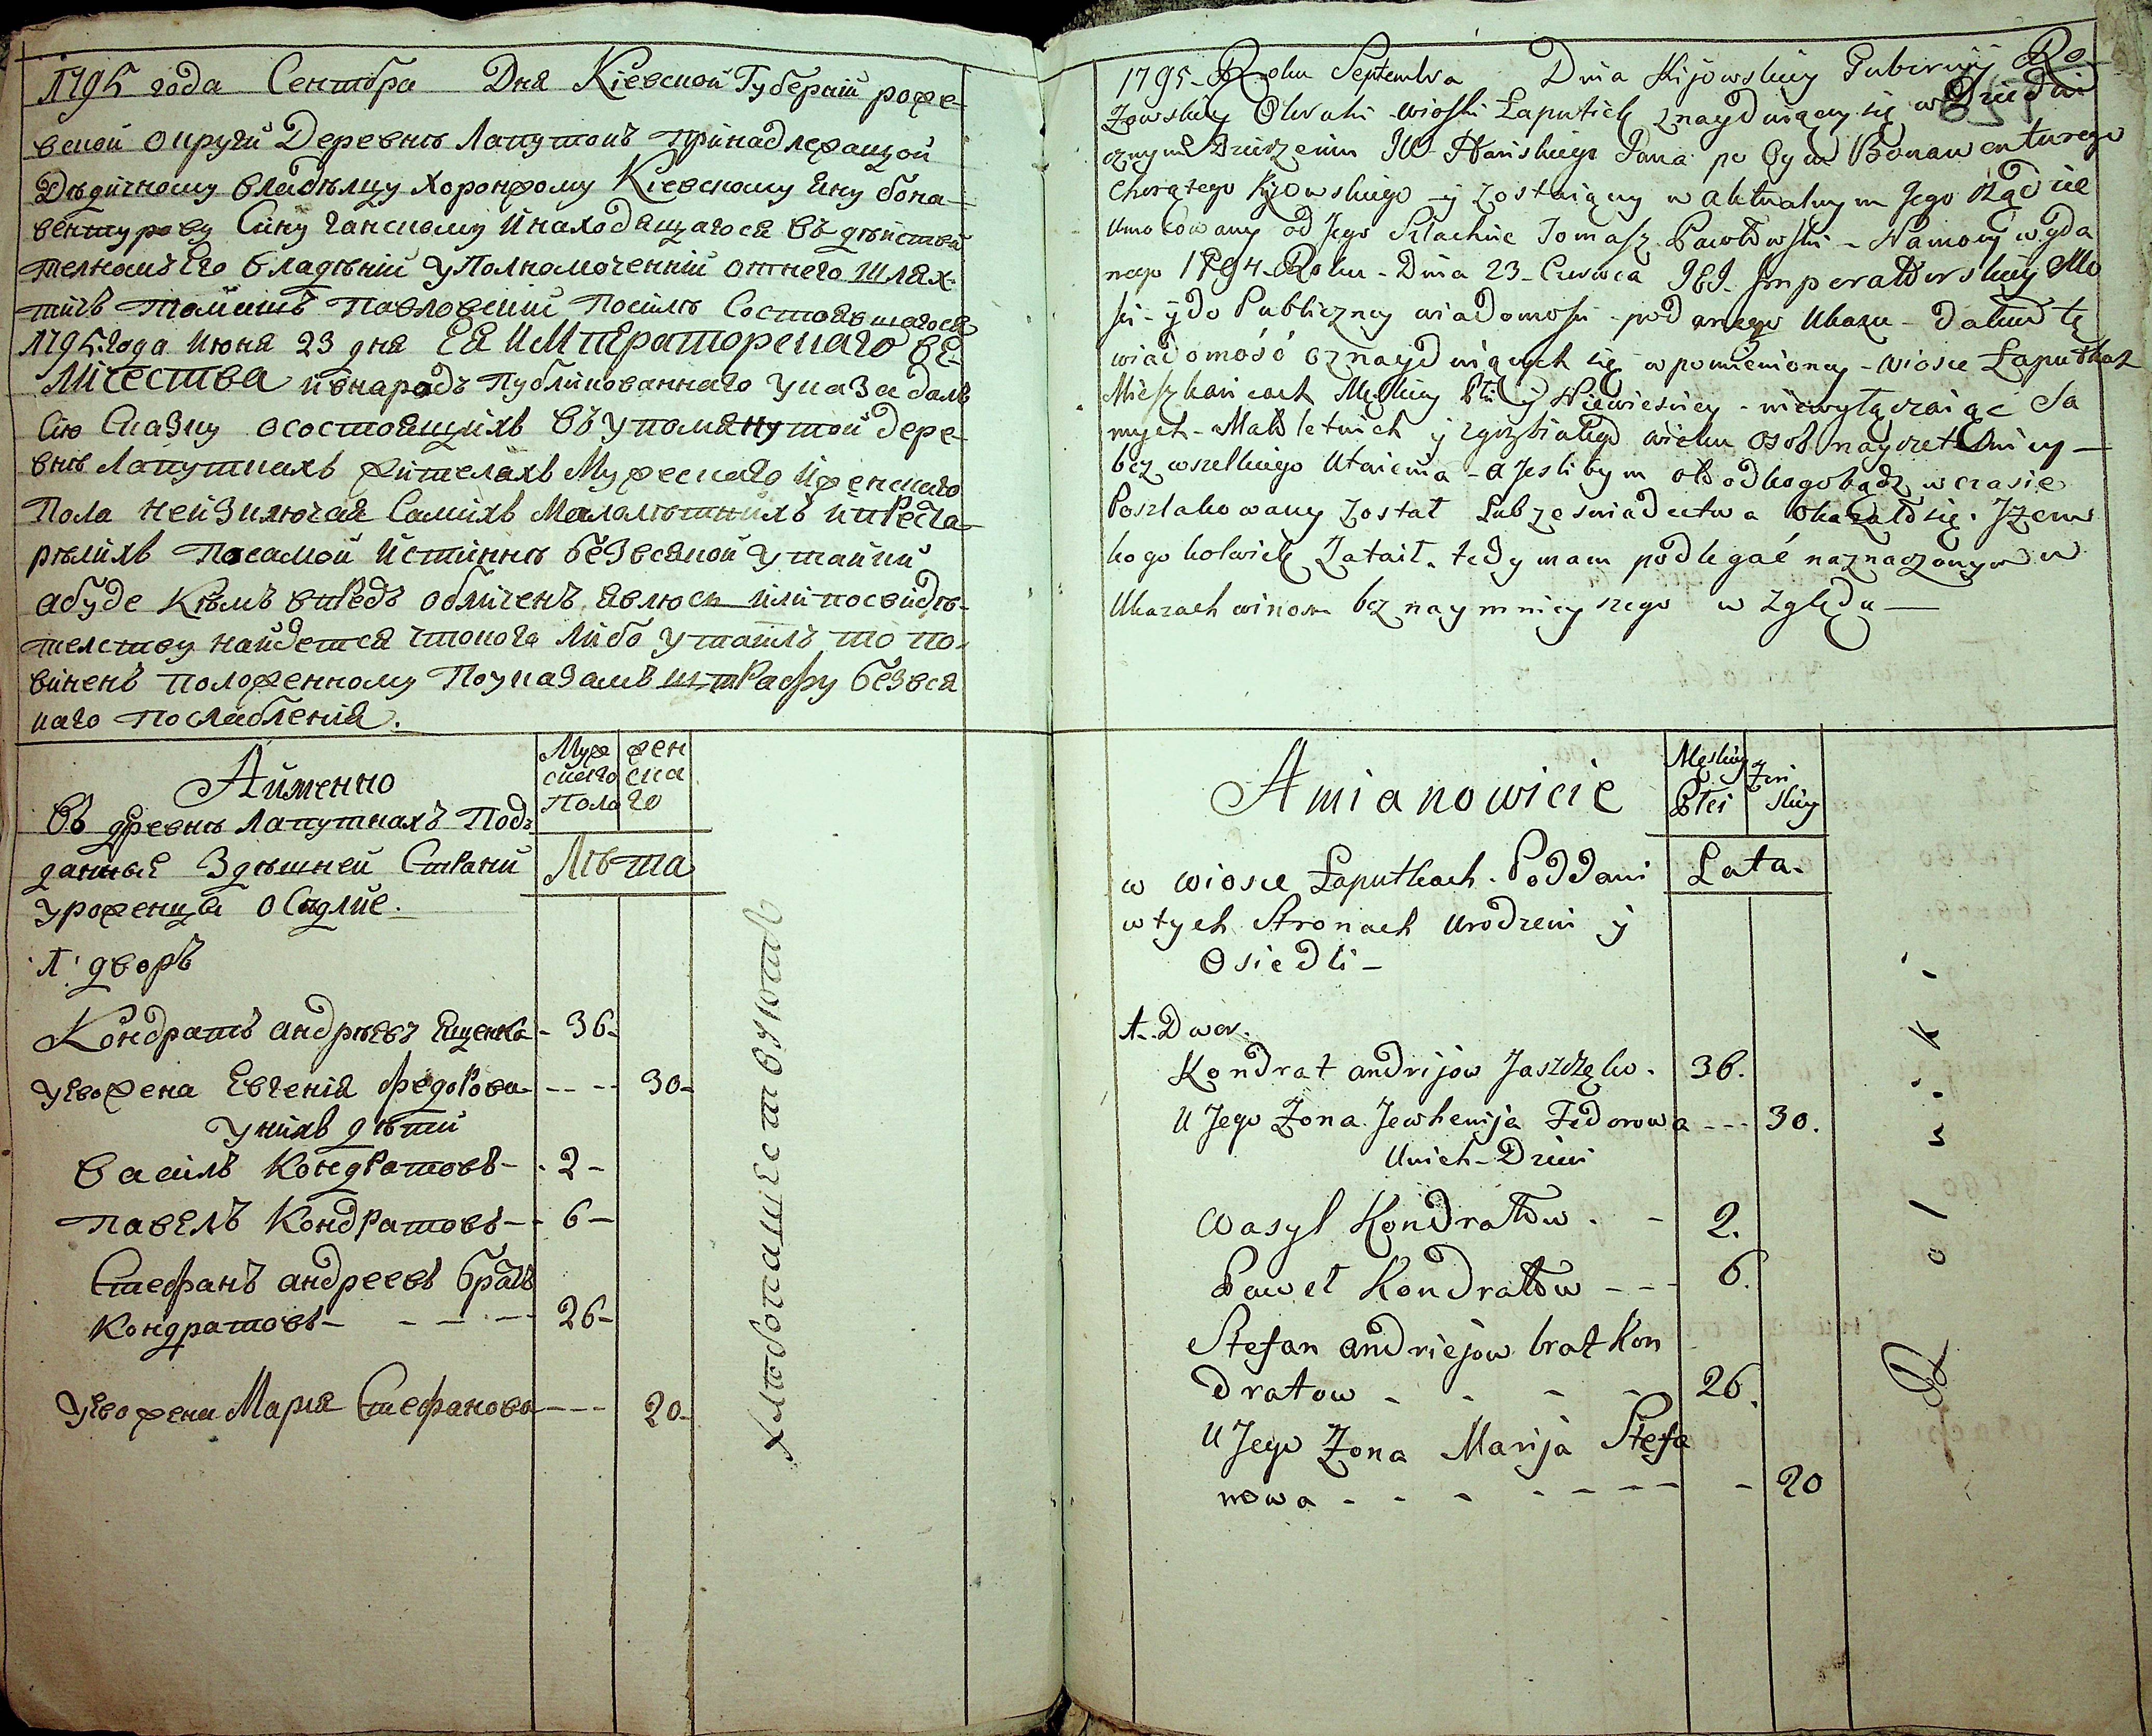 1795 года Сентября Дня Кіевской Губерніи роже-
вской округи Деревнѣ Лапуткѣ принадлежащой
Дѣдичному владѣлцу хоронжому Кіевскому Яну бона-
вентурову Сину ганскому и находящагося въ дѣйстви
телномъ его владѣніи уполномоченніи отнего шлях-
тичъ Томашъ Павловскій Посилѣ Состоявшагося
1795 года Июня 23 дня ЕЯ ИМПЕРАТОРСКАГО ВЕ-
ЛИЧЕСТВА ивнародъ Публикованнаго указа далъ
Сію Сказку осостоящихъ въ упомянутой дере-
внѣ Лапуткахъ жителахъ Мужескаго Иженскаго
Пола неизключая Самихъ Малолѣтнихъ ипреста-
рѣлихъ Посамой Истиннѣ безвсякой утайки
абуде Кѣмъ впредъ обличенъ явлюсь или посвидѣ-
телству найдется чтокого либо утаилъ то по-
виненъ положенному Поуказамъ штрафу безвся
каго послабленія.
Аименно
Муж жен
скаго ска
Пола го
Въ древнѣ Лапуткахъ Под
данные Здѣшней Страни
урожецы Осѣдлие.
Лѣта
1. дворъ
Кондратъ андрѣевъ Ященко - 36-
Уево жена Евгенія федорова - - - 30-
Унихъ дѣти
Василъ Кондратовъ - 2 -
Павелъ Кондратовъ - - 6 -
Стефанъ андреевъ братъ
Кондратовъ - - - - 26-
Уево жена Марія Стефанова - - - 20-
хлѣбопашествуютъ
1795 Roku Septembra Dnia Kijowskiey Guberniy Ro
żowskiey Okruhi wioski Łaputiek znayduiącey się w Dziedzi
cznym Dzierżeniu JW Hańskiego Jana po Oycu Bonawenturego
Chorążego Kijowskiego y zostaiącey w aktualnym Jego rządzie
Umocowany od Jego Szlachcic Tomasz Pawłowski - Namocy wyda
nego 1794 Roku - Dnia 23 - Czerwca JEJ Imperatorskiey Mo
ści - y do Publiczney wiadomości - podanego Ukazu - dałem tę
wiadomość oznayduiących się wpomienioney - wiosce Łaputkach
Mieszkańcach Męskiey Płci y Niewieściey - niewyłączaiąc Sa
mych - Małoletnich y zgrzybiałego wieku osob nayrzetelniey -
bez wszelkiego Utaienia - a Jeslibym od kogobądz w czasie
Poszlakowany Został Lub ze swiadectwa okazało się. Iżem
kogo kolwiek Zataił. tedy mam podlegać naznaczonym w
Ukazach winom bez naymnieyszego w Zględu -
Amianowicie
Męskiey Żeń
Płci skiey
w wiosce Łaputkach. Poddani
w tych Stronach Urodzeni y
Osiedli -
Lata.
1. Dwor.
Kondrat andrijow Jaszczęko. 36.
U Jego Żona Jewhenija Fedorowa - - - 30.
Unich - Dzieci
Wasyl Kondratow. - 2.
Paweł Kondratow - - - 6.
Stefan andriejow brat Kon
dratow - - - - 26.
U Jego Żona Marija Stefa
nowa - - - - - - - 20
Rolniki